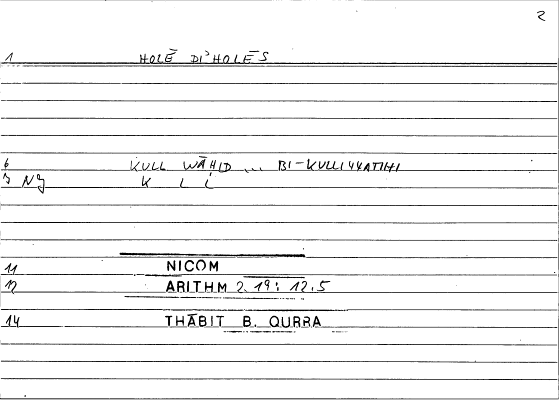 2
1 HOLĒ DI' HOLĒS
6 KULL WĀḤID ... BI-KULLIYYATIHI
K L L
11 NICOM
12 ARITHM 2.19: 12.5
14 THĀBIT B. QURRA